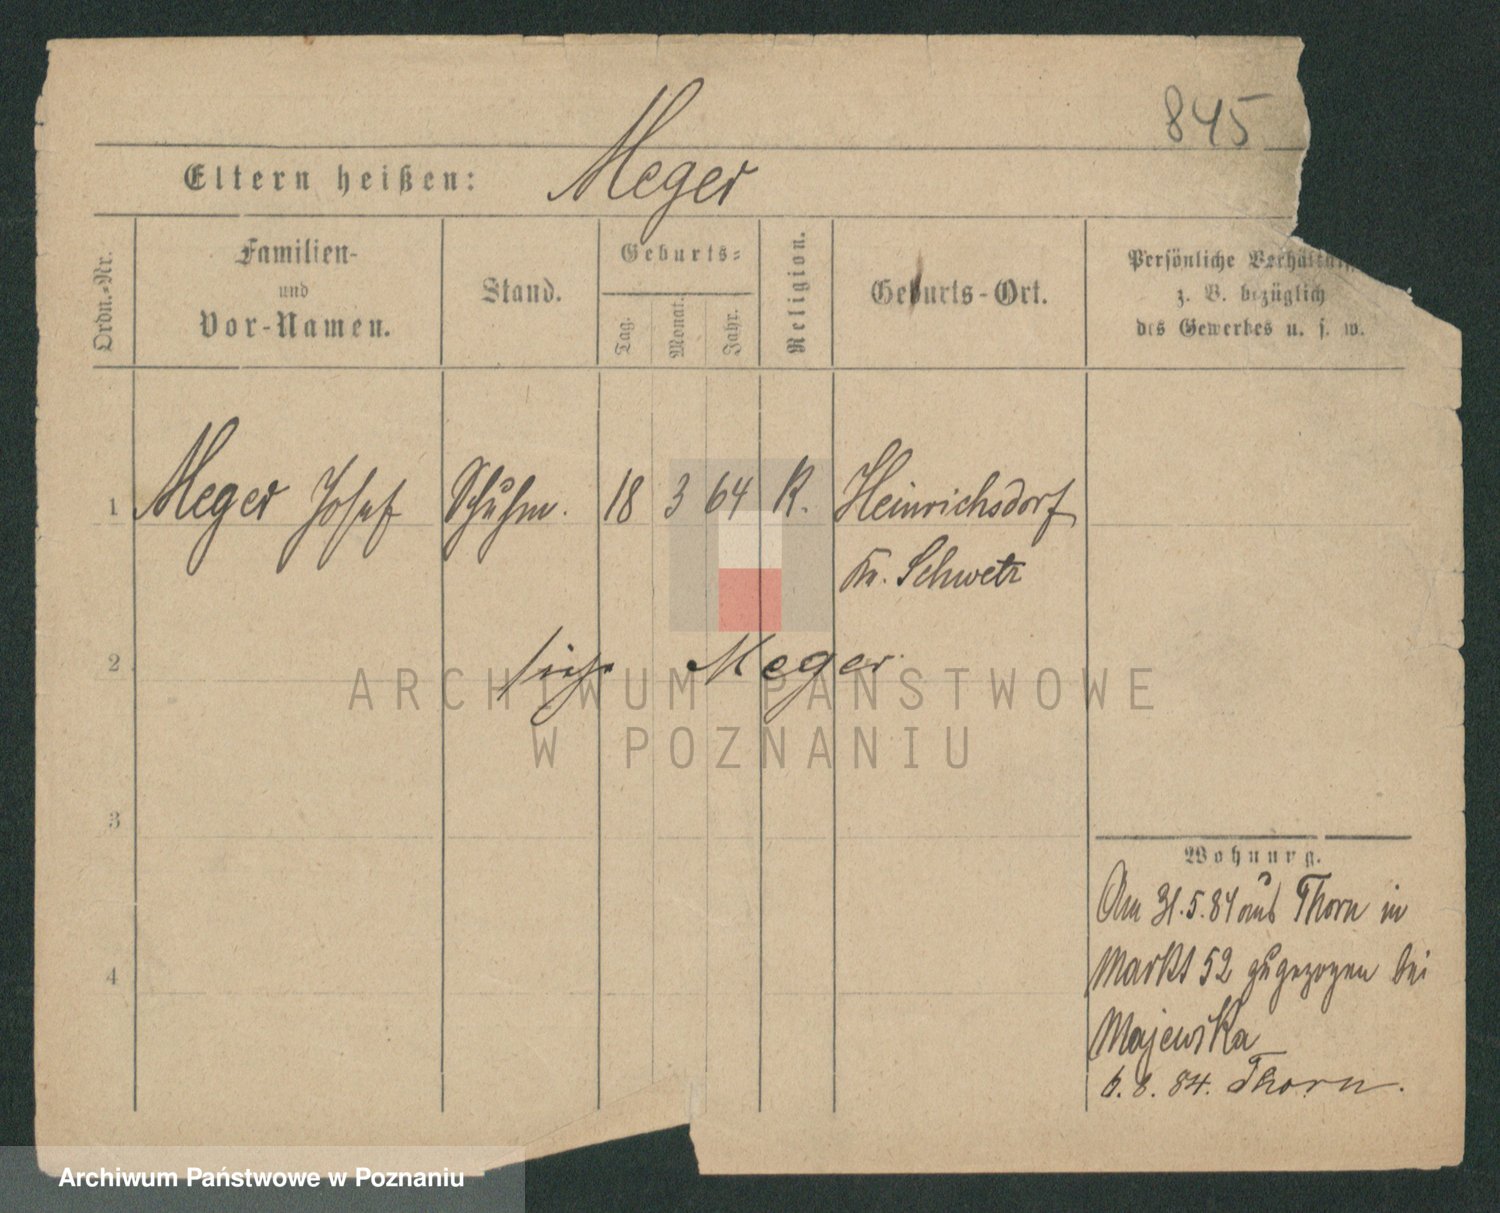 845
Eltern heißen: Meger
Ordn.-Nr.
Familien-
und
Vor-Namen.
Stand.
Geburts-
Tag.
Monat.
Jahr.
Religion.
Geburts-Ort.
Persönliche
z. B. bezüglich
des Gewerbes u. s. w.
1 Meger Josef Schuhm. 18 3 64 K. Heinrichsdorf
Kr. Schwetz
2
siehe Meger
ARCHIWUM PAŃSTWOWE
W POZNANIU
3
Wohnung.
Am 31.5.84 aus Thorn in
4
Markt 52 zugezogen bei
Majewska
6.8.84. Thorn.
Archiwum Państwowe w Poznaniu